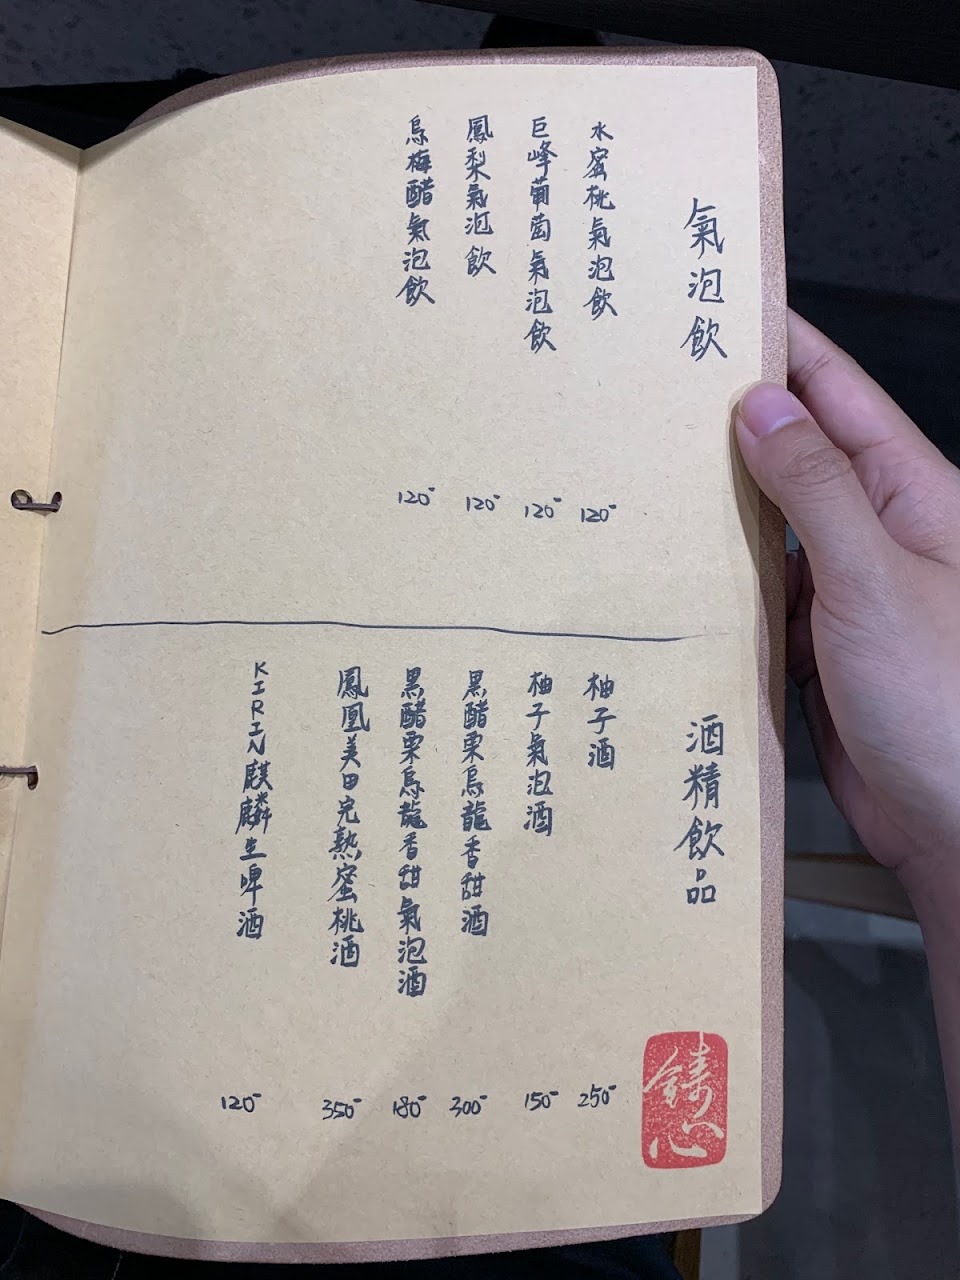 氣泡飲
水蜜桃氣泡飲
120-
巨峰葡萄氣泡飲
120-
鳳梨氣泡飲
120-
烏梅醋氣泡飲
120-
酒精飲品
柚子酒
250-
柚子氣泡酒
150-
黑醋栗烏龍香甜酒
300-
黑醋栗烏龍香甜氣泡酒
180-
鳳凰美田完熟蜜桃酒
350-
KIRIN麒麟生啤酒
120-
鑄心